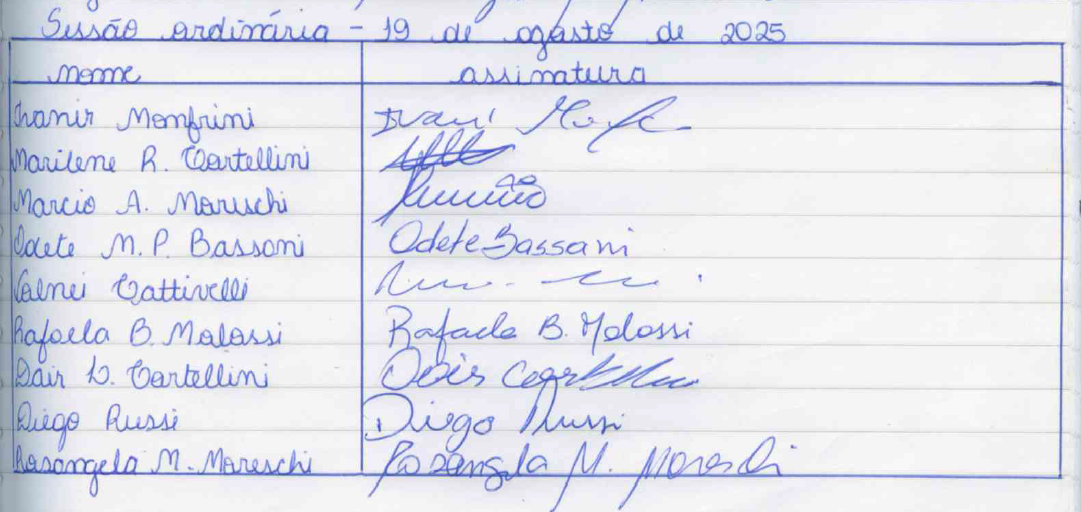 Sessão ordinária - 19 de agosto de 2025
nome assinatura
Ivanir Monfrini
Marilene R. Cortellini
Marcio A. Mareschi
Odete M. P. Bassani Odete Bassani
Valnei Cattivelli
Rafaela B. Molossi Rafaela B. Molossi
Odir D. Cortellini
Diego Russi Diego Russi
Rosangela M. Mareschi Rosangela M. Mareschi